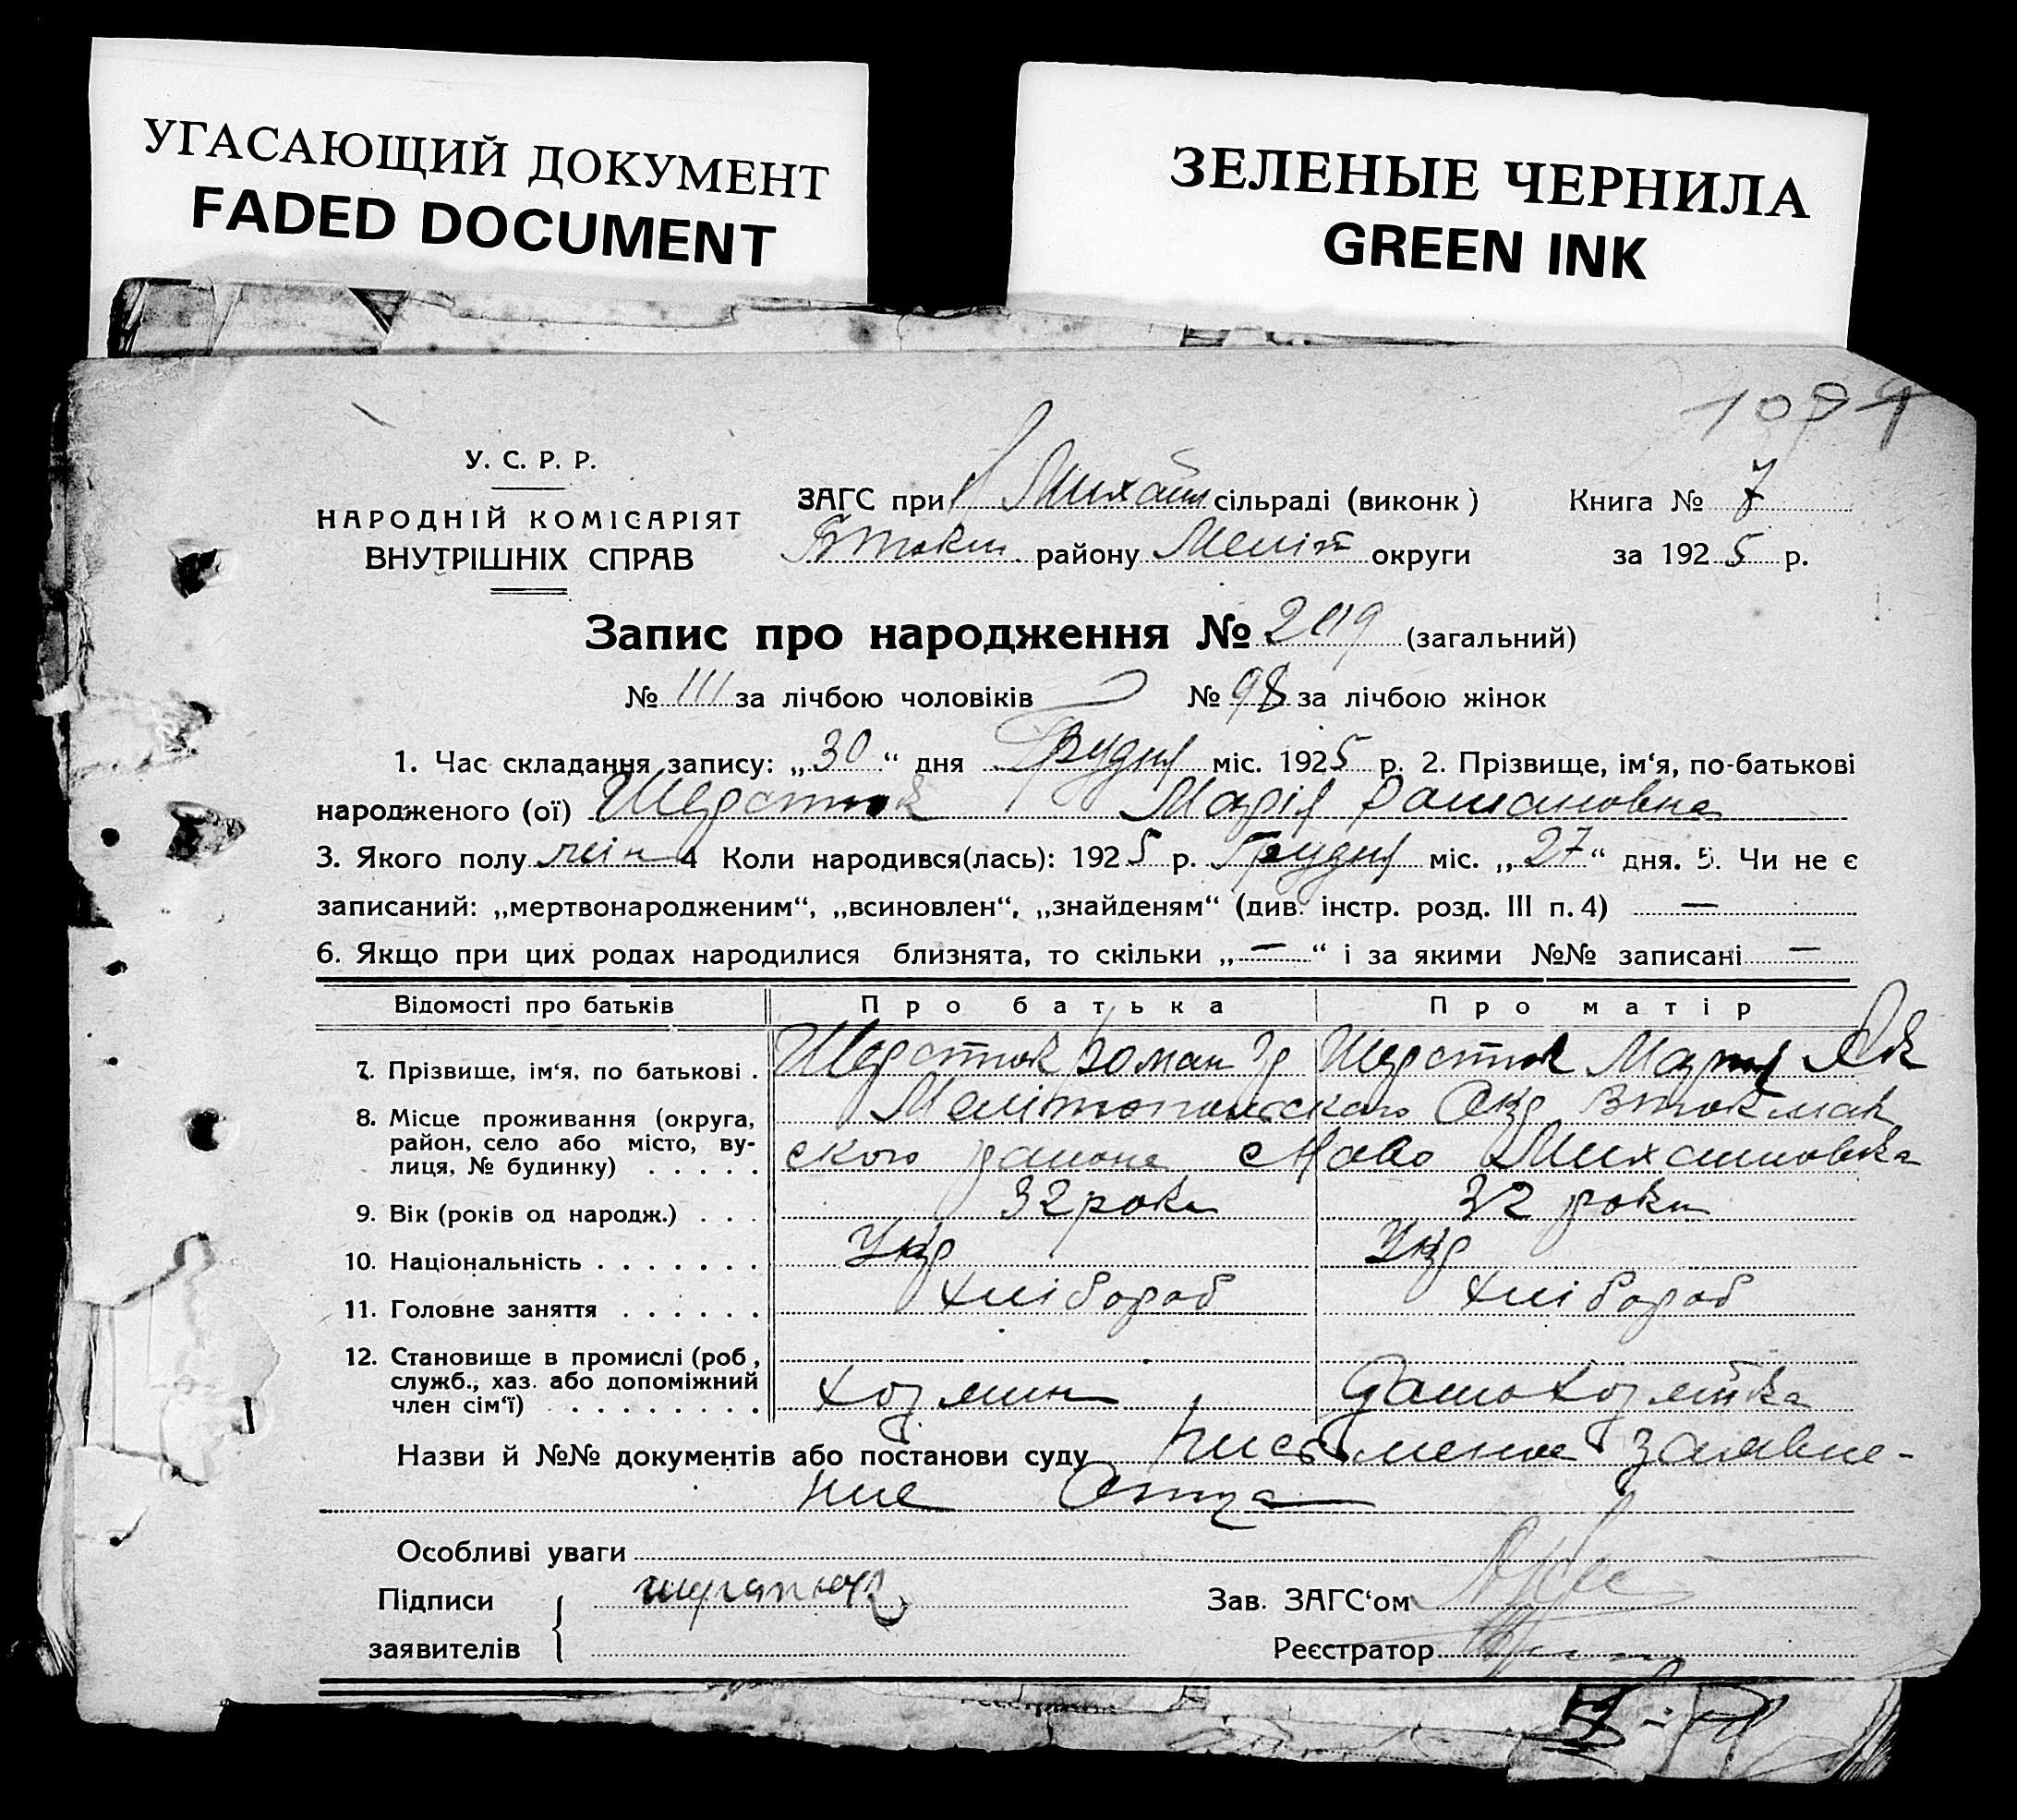 УГАСАЮЩИЙ ДОКУМЕНТ
FADED DOCUMENT
ЗЕЛЕНЫЕ ЧЕРНИЛА
GREEN INK
У. С. Р. Р.
НАРОДНІЙ КОМІСАРІЯТ
ВНУТРІШНІХ СПРАВ
ЗАГС при Михайл сільраді (виконк)
Втокм. району Меліт округи
Книга № 7
за 1925 р.
Запис про народження № 209 (загальний)
№ 111 за лічбою чоловіків № 98 за лічбою жінок
1. Час складання запису: „30“ дня Грудня міс. 1925 р. 2. Прізвище, ім‘я, по-батькові
народженого (ої) Шерстюк Марія Романовна
3. Якого полу жін 4 Коли народився(лась): 1925 р. Грудня міс. „27“ дня. 5. Чи не є
записаний: „мертвонародженим“, „всиновлен“, „знайденям“ (див. інстр. розд. III п. 4) —
6. Якщо при цих родах народилися близнята, то скільки „—“ і за якими №№ записані —
Відомості про батьків Про батька Про матір
7. Прізвище, ім‘я, по батькові . Шерстюк Роман Гр Шерстюк Мария Як
8. Місце проживання (округа, район, село або місто, вулиця, № будинку) . . . . . Мелітопольского Окр Втокмак
ского района с Ново Михайловка
9. Вік (років од народж.) . . . 32 роки 32 роки
10. Національність . . . . . . . Укр Укр
11. Головне заняття . . . . . . Хлібороб Хлібороб
12. Становище в промислі (роб., служб., хаз. або допоміжний член сім‘ї) . . . . . . . . Хозяин Домохозяйка
Назви й №№ документів або постанови суду Письменное заявле-
ние Отца
Особливі уваги
Підписи
заявителів
шерстюк
Зав. ЗАГС‘ом
Реєстратор